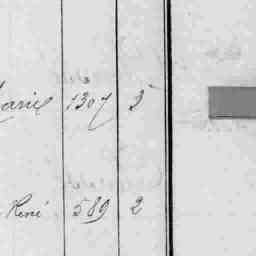 Marie 1307 3
René 589 2